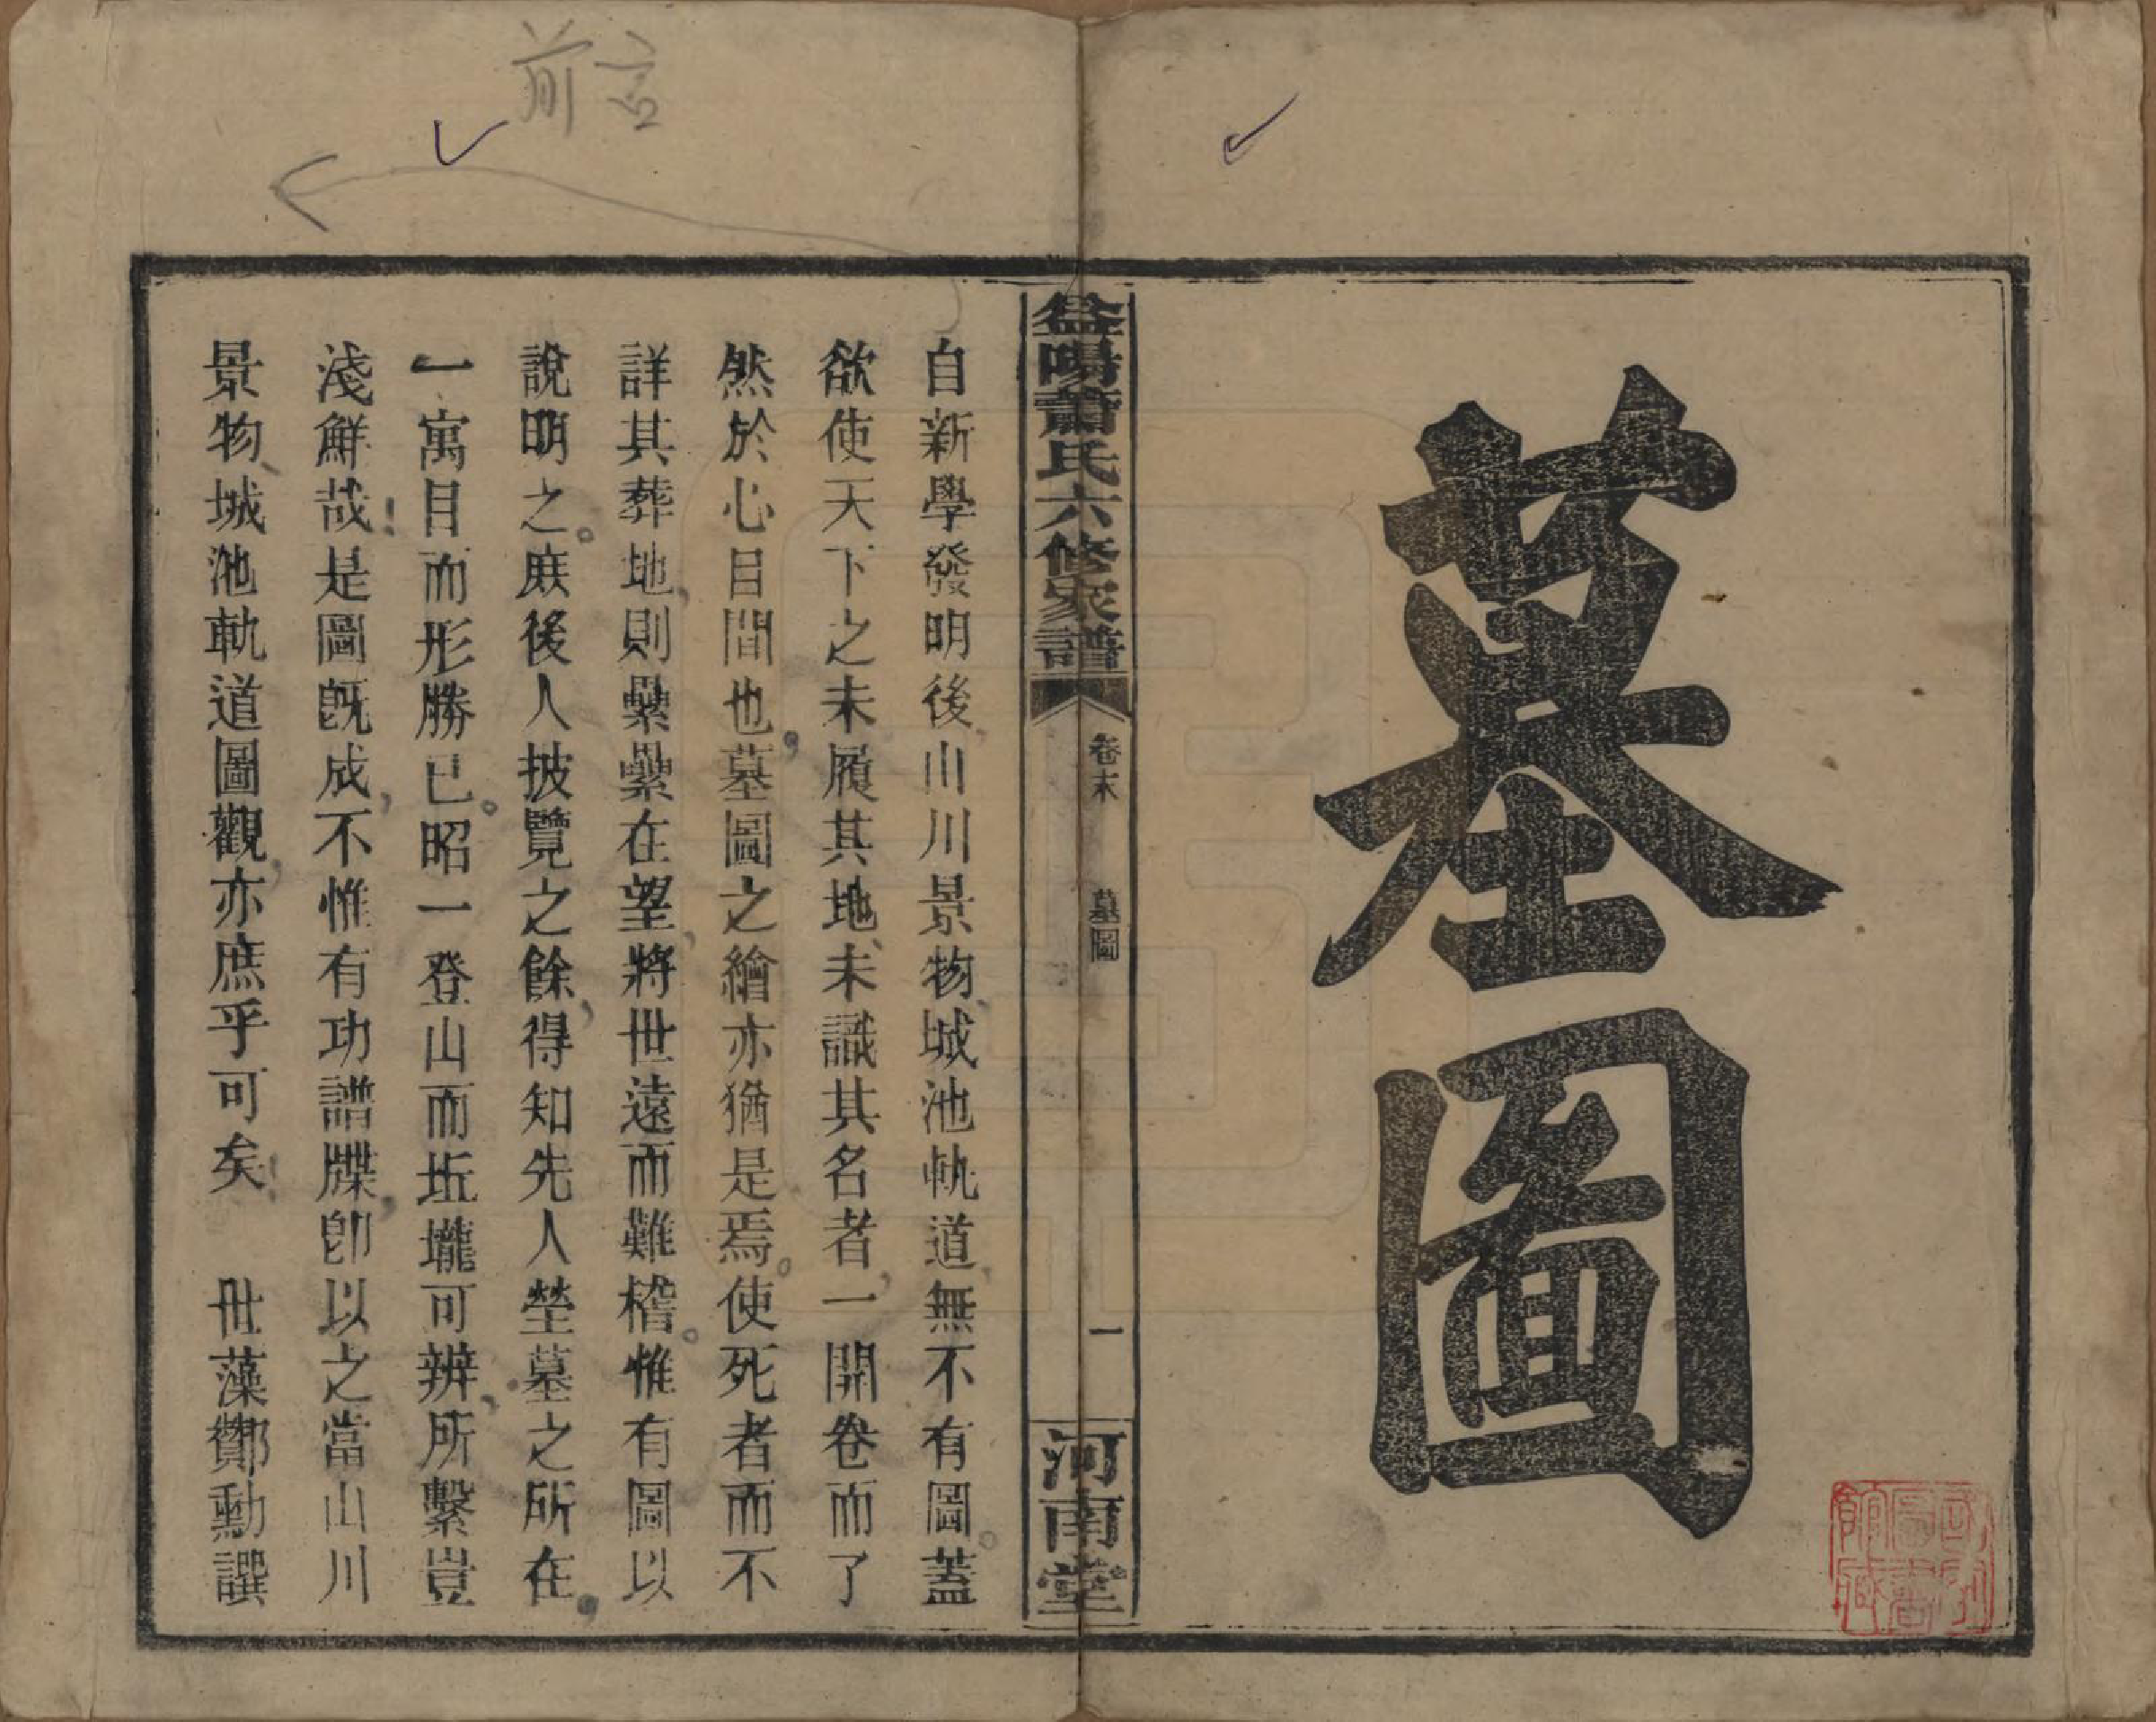 墓圖
益陽蕭氏六修家譜
卷末
墓圖
一
河南堂
前言
自新學發明後山川景物城池軌道無不有圖蓋
欲使天下之未履其地未識其名者一開卷而了
然於心目間也墓圖之繪亦猶是焉使死者而不
詳其葬地則纍纍在望將世遠而難稽惟有圖以
說明之庶後人披覽之餘得知先人塋墓之所在
一寓目而形勝已昭一登山而坵壠可辨所繫豈
淺鮮哉是圖既成不惟有功譜牒卽以之當山川
景物城池軌道圖觀亦庶乎可矣　世藻鄼勳譔